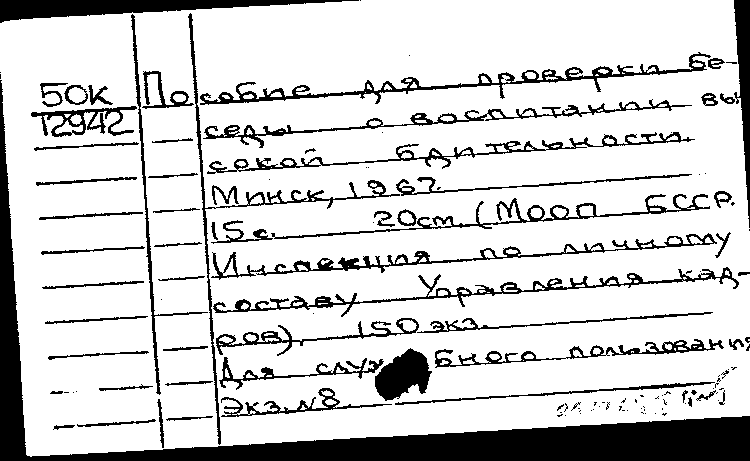 50К
12942
Пособие для проверки Бе-
седы о воспитании вы-
сокой бдительности.
Минск, 1967.
15 с. 20 cm. (МООП БССР.
Инспекция по личному
составу Управления кад-
ров). 150 экз.
Для служебного пользования
Экз. №8